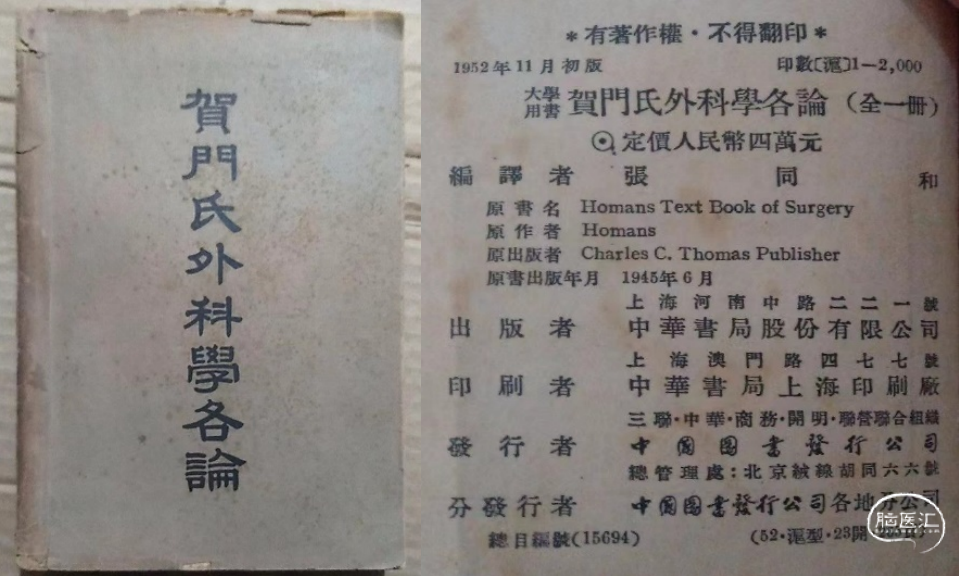 賀門氏外科學各論
*有著作權·不得翻印*
1952年11月初版 印數〔滬〕1—2,000
大學用書 賀門氏外科學各論 (全一冊)
定價人民幣四萬元
編譯者 張同和
原書名 Homans Text Book of Surgery
原作者 Homans
原出版者 Charles C. Thomas Publisher
原書出版年月 1945年6月
上海河南中路二二一號
出版者 中華書局股份有限公司
上海澳門路四七七號
印刷者 中華書局上海印刷廠
三聯·中華·商務·開明·聯營聯合組織
發行者 中國圖書發行公司
總管理處:北京絨線胡同六六號
分發行者 中國圖書發行公司各地分公司
總目編號(15694) (52·滬型·23開
脑医汇